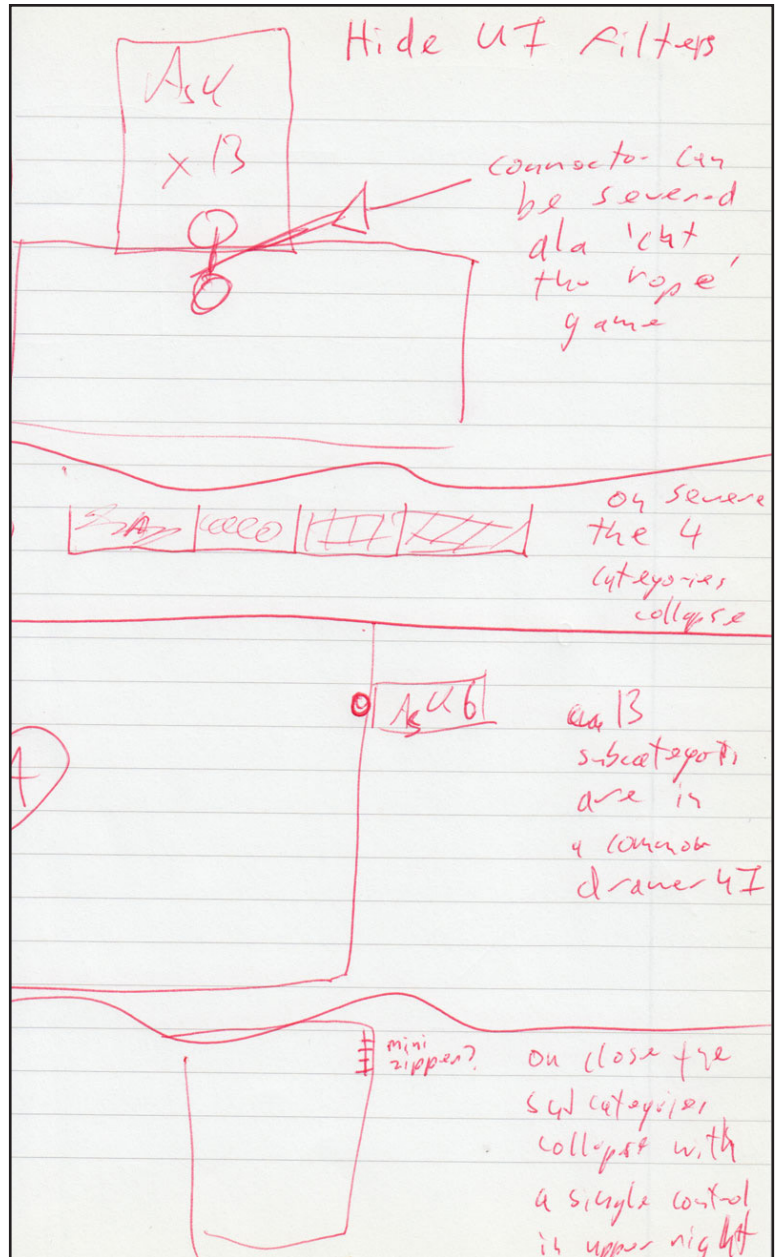 Hide UI Filters
Ask
x 13
connector can
be severed
ala 'cut
the rope'
game
on severe
the 4
categories
collapse
Ask 6
13
subcategories
are in
a common
drawer UI
A
mini
zipper?
on close the
sub categories
collapse with
a single control
in upper right